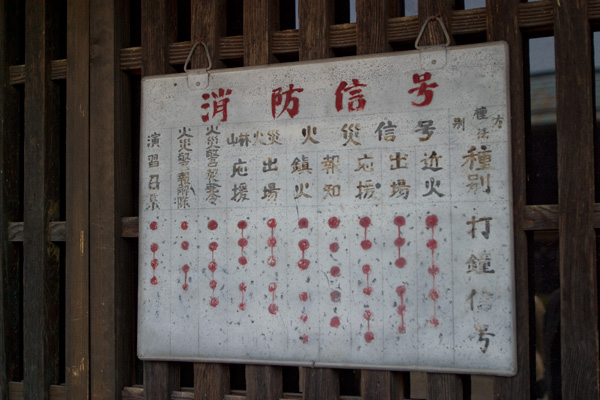 消防信号
方法
種別
種別
打鐘信号
火災信号
近火
出場
応援
報知
鎮火
山林火災
出場
応援
火災警報発令
火災警報解除
演習召集